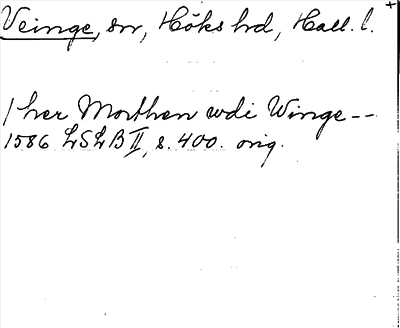 Veinge, sn, Höks hd, Hall. l.
/ her Morthen wdi Winge --
1586 LSLB II, s. 400. orig.